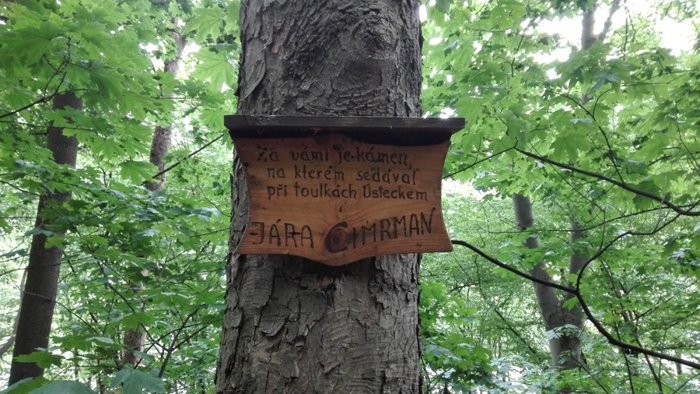 Za vámi je kámen,
na kterém sedával
při toulkách Ústeckem
i
JÁRA CIMRMAN